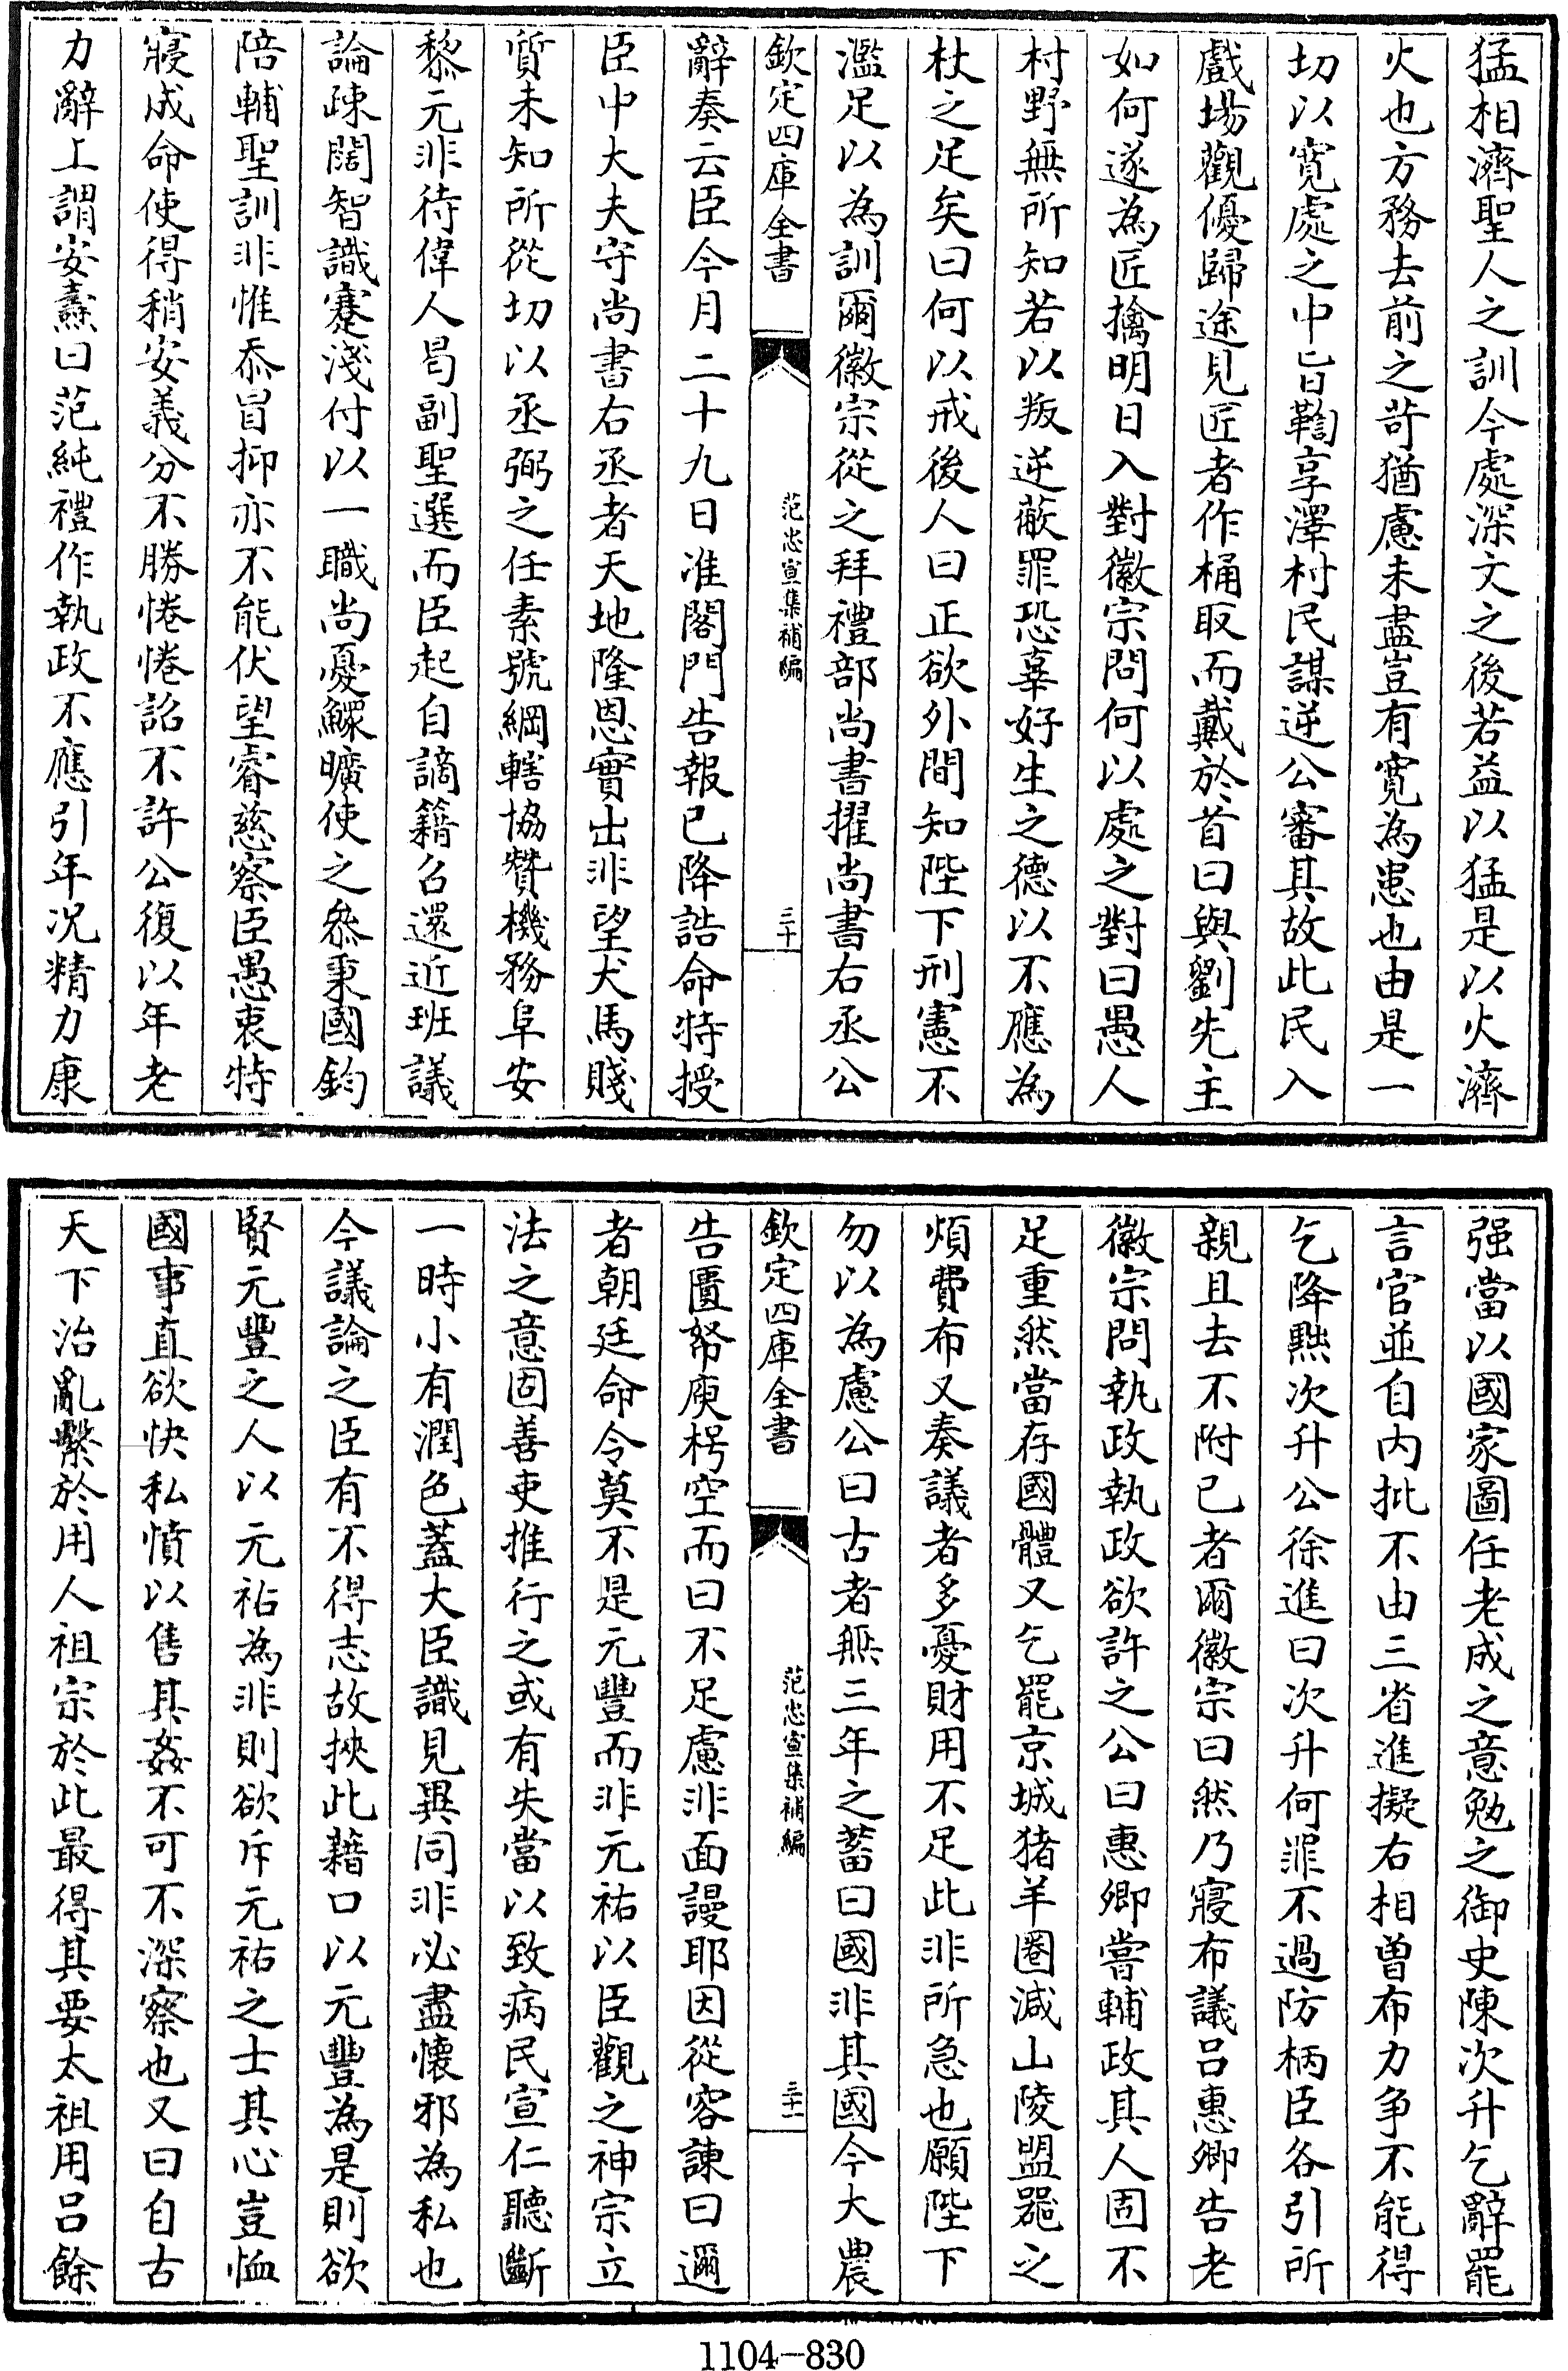 猛相濟聖人之訓今處深文之後若益以猛是以火濟
火也方務去前之苛猶慮未盡豈有寛為患也由是一
切以寛處之中旨鞫享澤村民謀逆公審其故此民入
戲場觀優歸途見匠者作桶取而戴於首曰與劉先主
如何遂為匠擒明日入對徽宗問何以處之對曰愚人
村野無所知若以叛逆蔽罪恐辜好生之德以不應為
杖之足矣曰何以戒後人曰正欲外間知陛下刑憲不
濫足以為訓爾徽宗從之拜禮部尚書擢尚書右丞公
欽定四庫全書
范忠宣集補編
三十
辭奏云臣今月二十九日准閤門告報已降誥命特授
臣中大夫守尚書右丞者天地隆恩實出非望犬馬賤
質未知所從切以丞弼之任素號綱轄協贊機務阜安
黎元非待偉人曷副聖選而臣起自謫籍召還近班議
論疎闊智識蹇淺付以一職尚憂鰥曠使之叅秉國鈞
陪輔聖訓非惟忝冒抑亦不能伏望睿慈察臣愚衷特
寢成命使得稍安義分不勝惓惓詔不許公復以年老
力辭上謂安燾曰范純禮作執政不應引年况精力康
强當以國家圖任老成之意勉之御史陳次升乞辭罷
言官並自内批不由三省進擬右相曽布力爭不能得
乞降黜次升公徐進曰次升何罪不過防柄臣各引所
親且去不附已者爾徽宗曰然乃寢布議吕惠卿告老
徽宗問執政執政欲許之公曰惠卿嘗輔政其人固不
足重然當存國體又乞罷京城猪羊圈減山陵盟器之
煩費布又奏議者多憂財用不足此非所急也願陛下
勿以為慮公曰古者無三年之蓄曰國非其國今大農
欽定四庫全書
范忠宣集補編
三十一
告匱帑庾枵空而曰不足慮非面謾耶因從容諫曰邇
者朝廷命令莫不是元豐而非元祐以臣觀之神宗立
法之意固善吏推行之或有失當以致病民宣仁聽斷
一時小有潤色蓋大臣識見異同非必盡懷邪為私也
今議論之臣有不得志故挾此藉口以元豐為是則欲
賢元豐之人以元祐為非則欲斥元祐之士其心豈恤
國事直欲快私憤以售其姦不可不深察也又曰自古
天下治亂繫於用人祖宗於此最得其要太祖用吕餘
1104-830